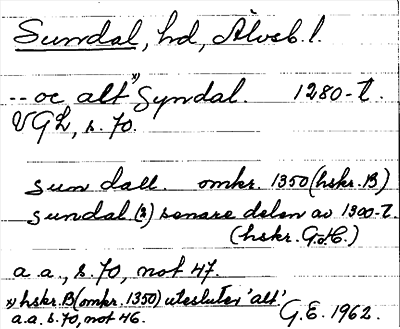 Sundal, hd, Älvsb. l.
-- oc alt x) Syndal. 1280-t.
VGL, s. 70.
sun dall. omkr. 1350 (hskr. B)
sundal (2) senare delen av 1300-t.
(hskr. G o. C.)
a.a., s. 70, not 47.
x) hskr. B (omkr. 1350) utesluter 'alt'
a.a. s. 70, not 46. G.E. 1962.